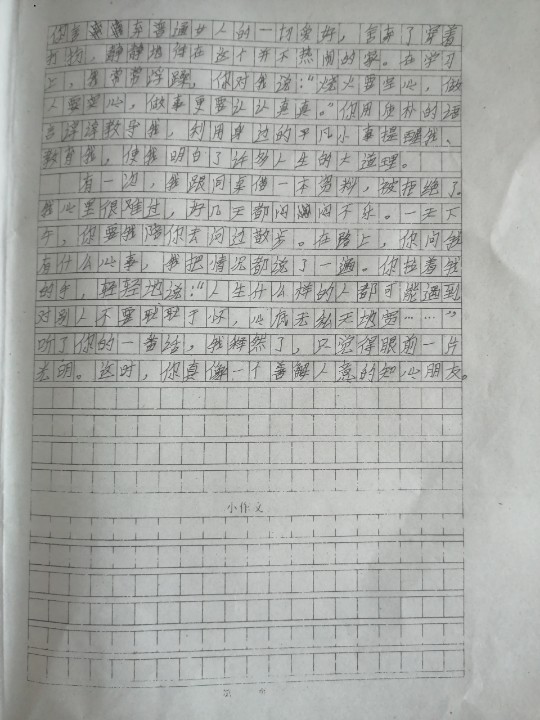 你放弃了普通女人的一切爱好，
静静地守在这个并不热闹的家。在学习
上，我常常浮躁，你对我说：“烧火要空心，做
人要实心，做事更要认认真真。”你用质朴的语
言谆谆教导我，利用身边的平凡小事提醒我、
教育我，使我明白了许多人生的大道理。
有一次，我跟同桌借一本资料，被拒绝了。
我心里很难过，好几天都闷闷不乐。一天下
午，你要我陪你去河边散步。在路上，你问我
有什么心事，我把情况都说了一遍。你拉着我
的手，轻轻地说：“人生什么样的人都可能遇到
对别人不要耿耿于怀，心底无私天地宽……”
听了你的一番话，我释然了，只觉得眼前一片
光明。这时，你真像一个善解人意的知心朋友。
小作文
第 页